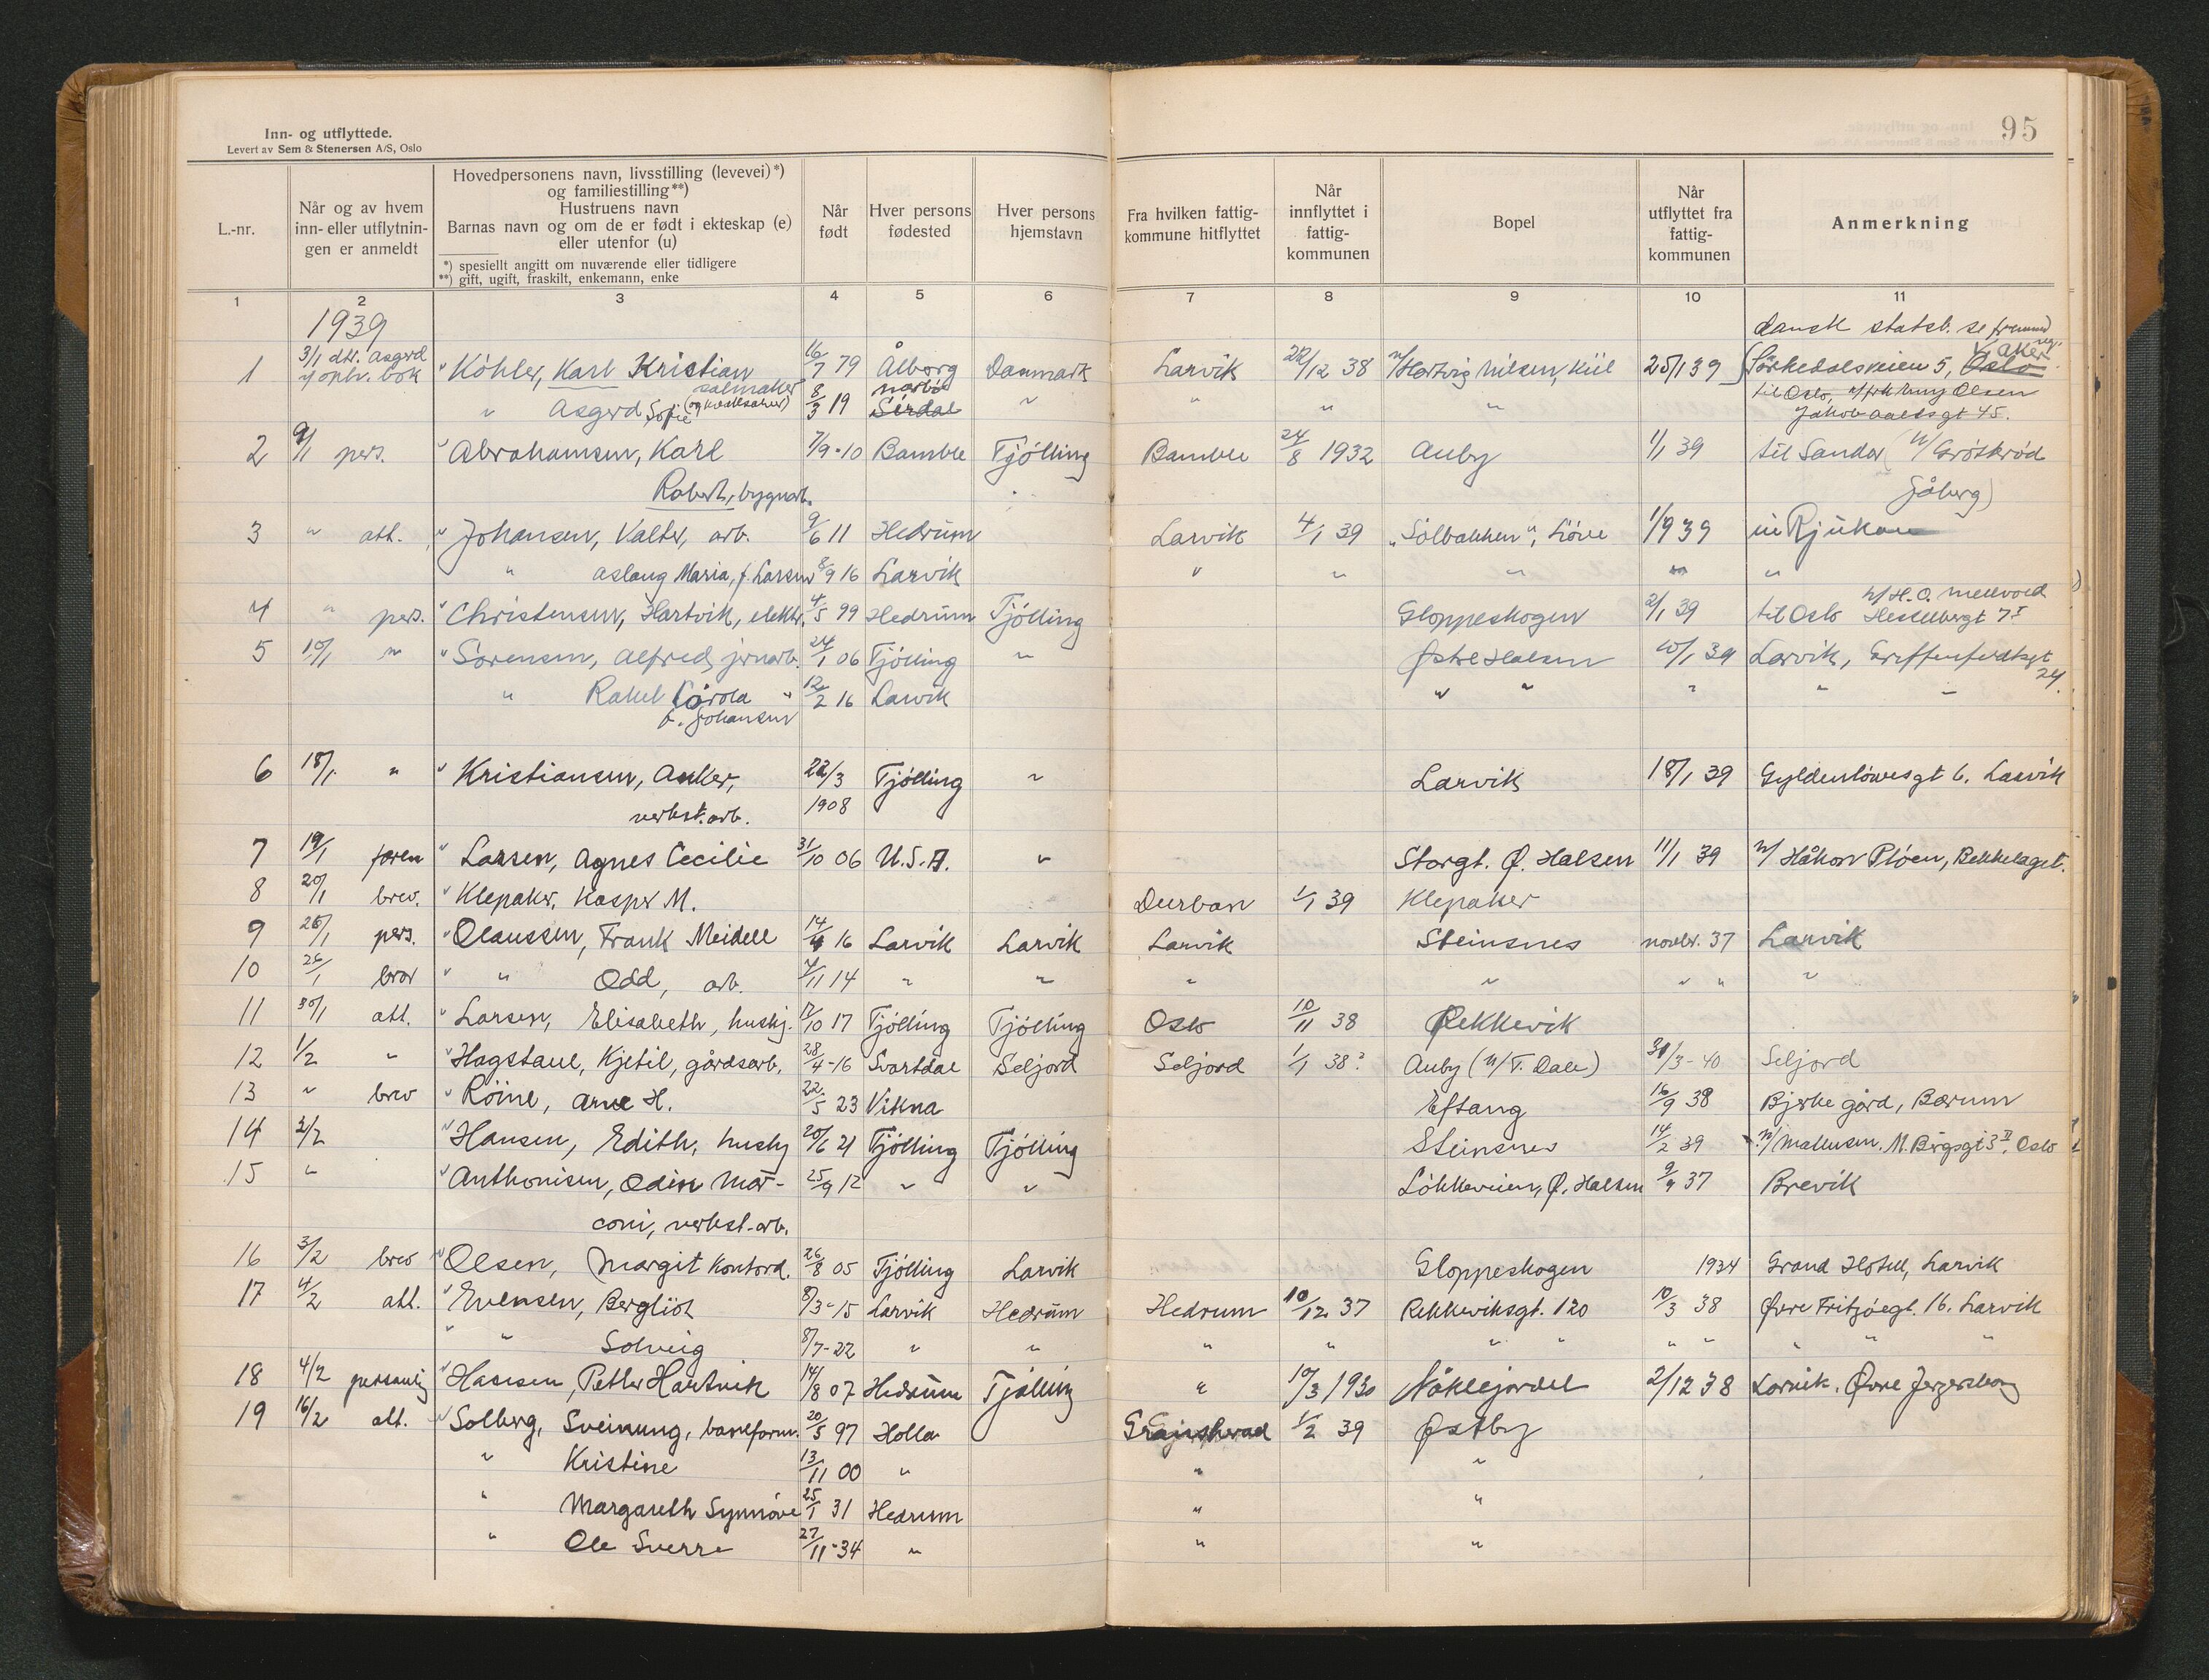 Inn- og utflyttede.
Levert av Sem & Stenersen A/S, Oslo
95
L.-nr.
Når og av hvem
inn- eller utflytnin-
gen er anmeldt
Hovedpersonens navn, livsstilling (levevei)*)
og familiestilling**)
Hustruens navn
Barnas navn og om de er født i ekteskap (e)
eller utenfor (u)
*) spesiellt angitt om nuværende eller tidligere
**) gift, ugift, fraskilt, enkemann, enke
Når
født
Hver persons
fødested
Hver persons
hjemstavn
Fra hvilken fattig-
kommune hitflyttet
Når
innflyttet i
fattig-
kommunen
Bopel
Når
utflyttet fra
fattig-
kommunen
Anmerkning
1 2 3 4 5 6 7 8 9 10 11
1939
dansk statsb. se fremmed
1 3/1 dtr. Asgerd Köhler, Karl Kristian 16/7 79 Ålborg Danmark Larvik 22/12 38 Hartvig Nilsen, Kiil 25/1 39 Sörkedalsveien 5, Oslo Aker
salmaker
" Asgerd Sofie 8/3 19 Sirdal " " " " til Oslo,
Jakob Aallsgt 45.
2 9/1 pers. Abrahamsen, Karl 7/9-10 Bamble Tjölling Bamble 24/8 1932 Auby 1/1 39 til Sandar (v/ Grötteröd
Robert, bygnarb. Jåberg)
3 " att. Johansen, Valter, arb. 9/6 11 Hedrum Larvik 4/1 39 "Solbakken", Löve 1/9 39 Rjukan
" Aslaug Maria, f. Larsen 8/9 16 Larvik " " " " "
4 " pers. Christensen, Hartvik, elektr. 4/5 99 Hedrum Tjölling Gloppeskogen 2/1 39 til Oslo v/ H. O. Mellvold
Hesselbergt 7 I
5 10/1 " Sörensen, Alfred, jernarb. 24/1 06 Tjölling " Östre Halsen 10/1 39 Larvik, Griffenfeldtsgt
24.
" Rakel Carola " 12/2 16 Larvik " " " " "
f. Johansen
6 18/1 " Kristiansen, Anker, 22/3 Tjölling " Larvik 18/1 39 Gyldenlövesgt 6. Larvik
verkst.arb. 1908
7 19/1 foren Larsen, Agnes Cecilie 31/10 06 U.S.A. " Storgt. Ø. Halsen 11/1 39 v/ Håkon Plöen, Bekkelaget.
8 20/1 brev. Klepaker, Kasper M. Durban 1/1 39 Klepaker
9 26/1 pers. Olaussen, Frank Meidell 14/4 16 Larvik Larvik Larvik Steinsnes novbr. 37 Larvik
10 26/1 brev " " Odd, arb. 7/11 14 " " " " " " "
11 30/1 att. Larsen, Elisabeth, hushj. 17/10 17 Tjölling Tjölling Oslo 10/11 38 Rekkevik
12 1/2 " Hagstaul, Kjetil, gårdsarb. 28/4-16 Svartdal Seljord Seljord 1/1 38? Auby (v/ T. Dale) 31/3-40 Seljord
13 " brev Röine, Arne H. 22/5 23 Vikna Eftang 16/9 38 Bjerke gård, Bærum
14 2/2 Hansen, Edith, hushj 20/6 21 Tjölling Tjölling Steinsnes 14/2 39 v/ Mathisen, M. Birgsgt 3 II, Oslo
15 " Anthonisen, Odin Mar- 25/9 12 " " Lökkeveien, Ø. Halsen 9/9 37 Brevik
coni, verkst.-arb.
16 3/2 brev Olsen, Margit kontord. 26/8 05 Tjölling Larvik Gloppeskogen 1934 Grand Hotell, Larvik
17 4/2 att. Evensen, Bergliot 8/3-15 Larvik Hedrum Hedrum 10/12 37 Rekkeviksgt. 120 10/3 38 Øvre Fritzöegt. 16. Larvik
" " Solveig 8/7-22 " " " " " " " " " " "
18 4/2 personlig Hansen, Petter Hartvik 14/8 07 Hedrum Tjölling " 10/3 1930 Nåklejordet 2/12 38 Larvik. Øvre Jegersborg
19 16/2 att. Solberg, Sveinung, baneform. 20/5 97 Holla Gransherad 1/2 39 Østby
" Kristine 13/11 00 " " "
" Margareth Synnöve 25/1 31 Hedrum " "
" Ole Sverre 27/11-34 " " "